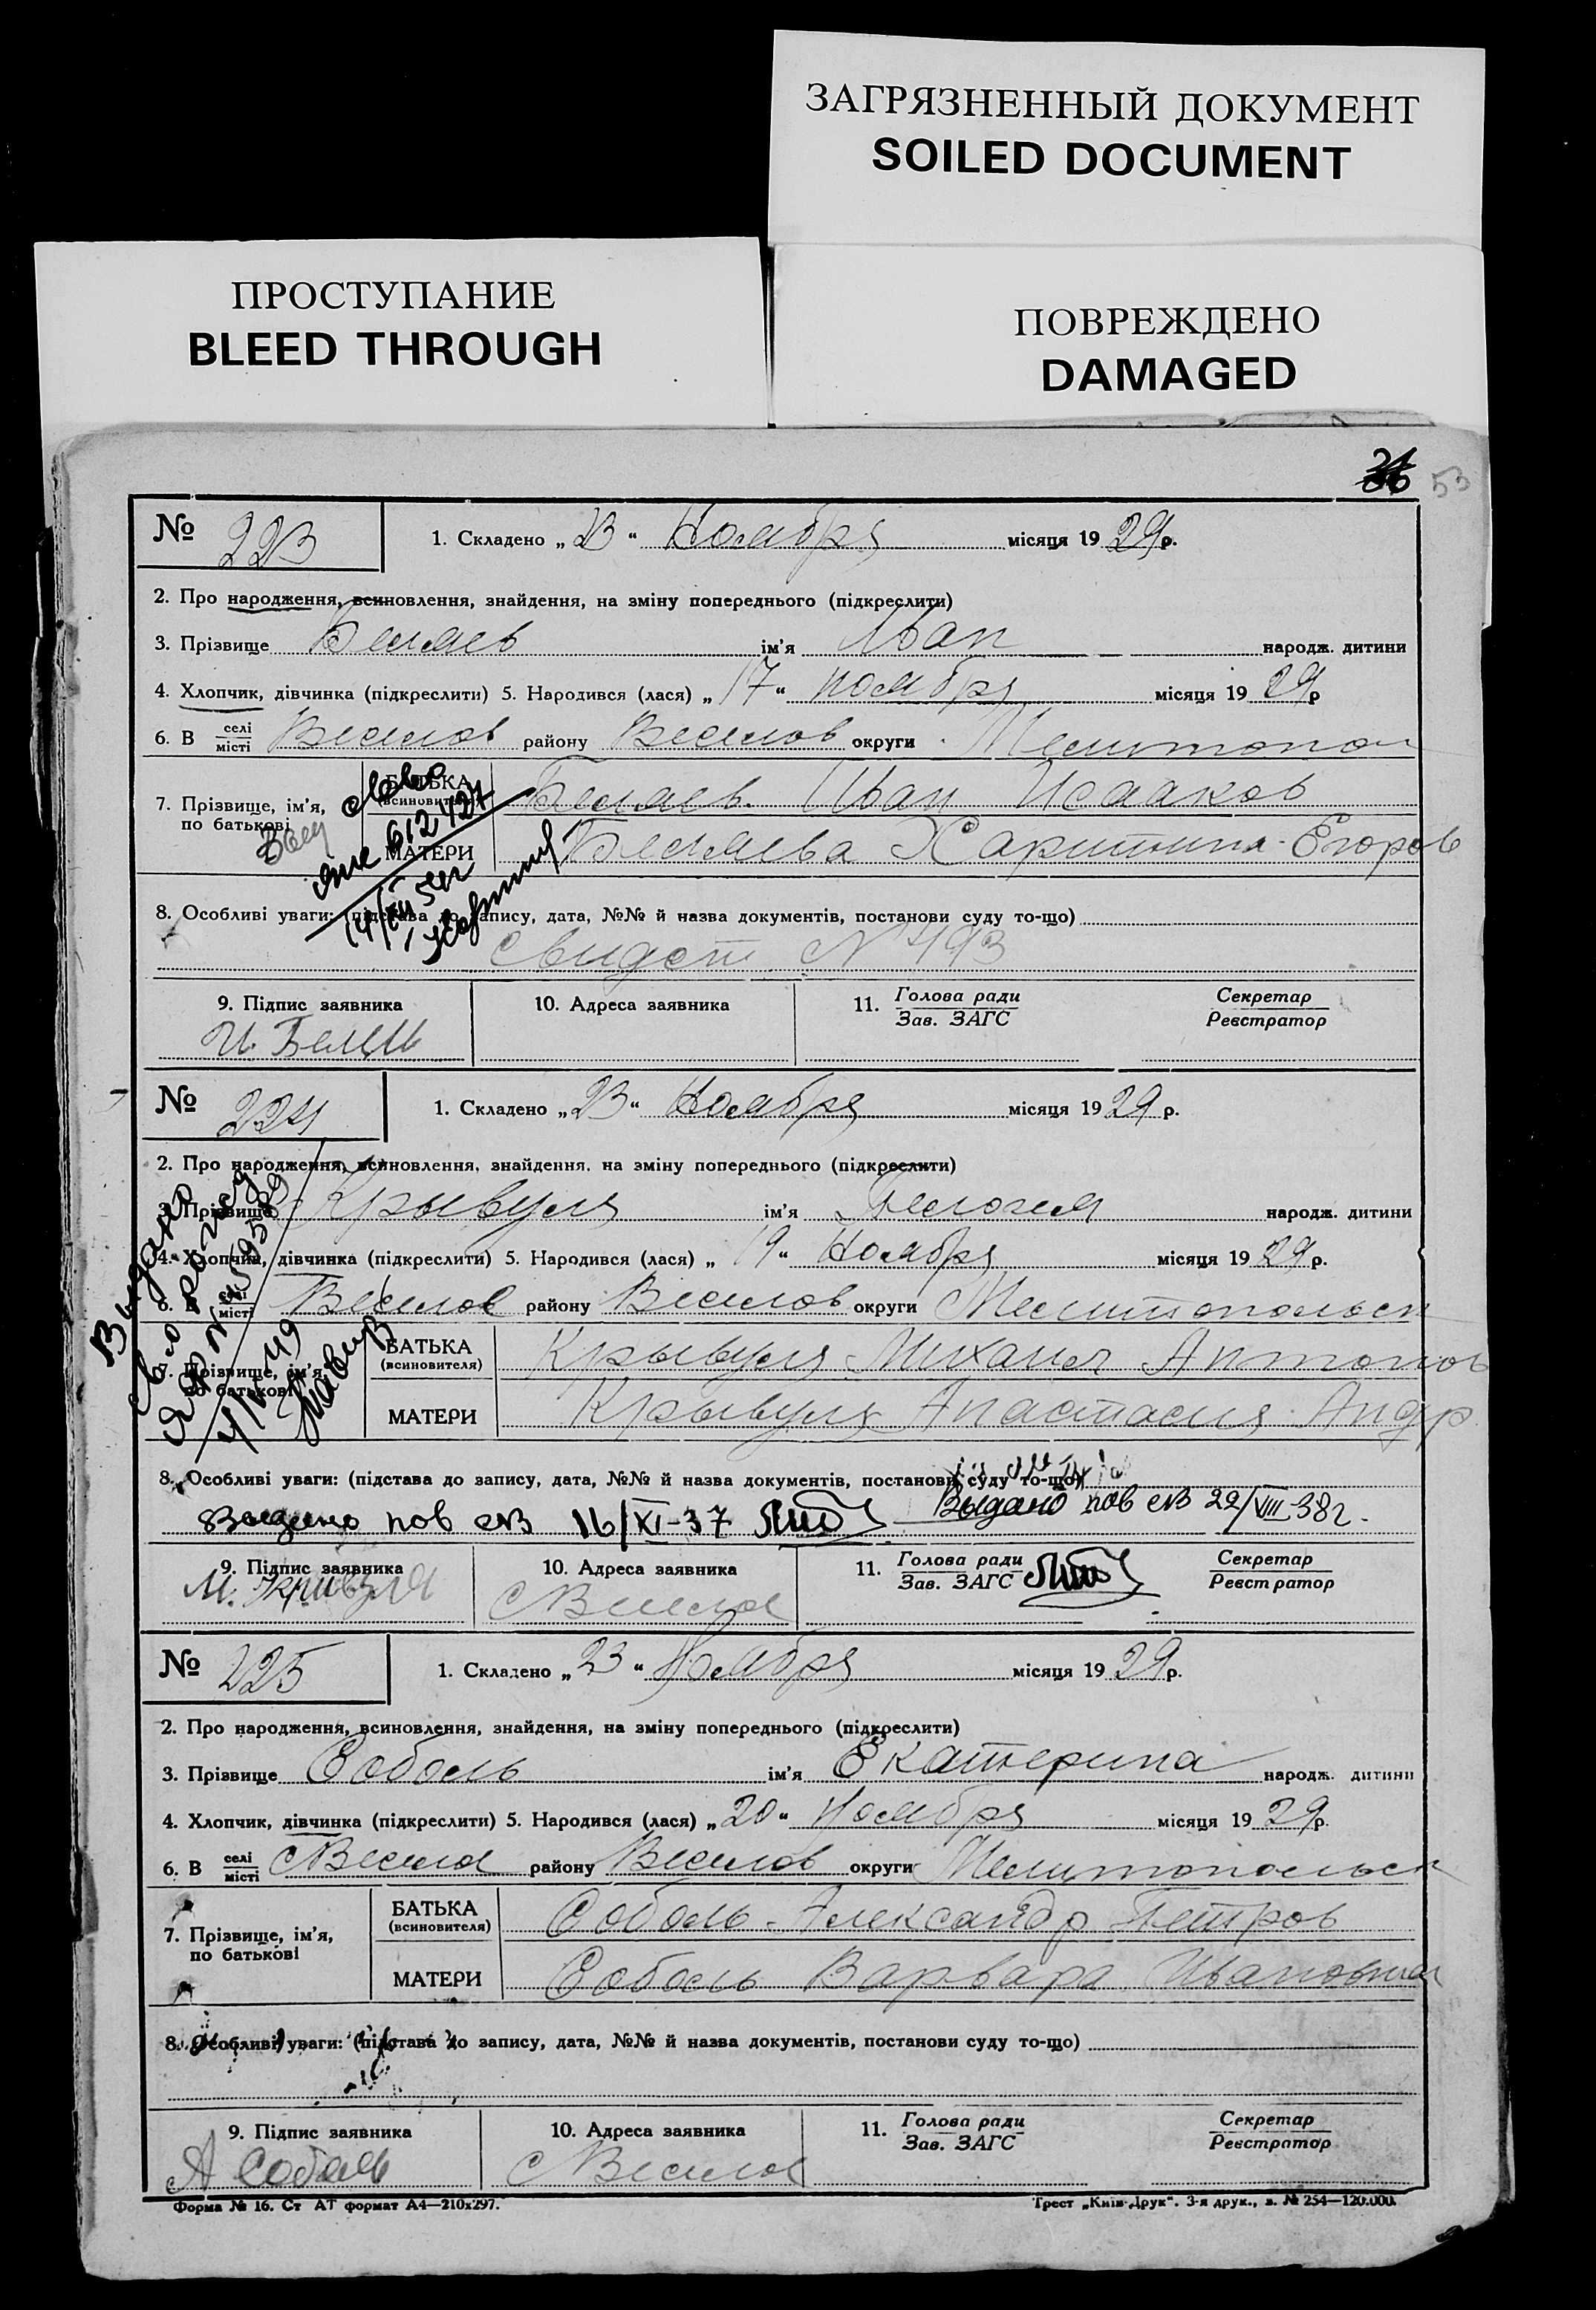 ЗАГРЯЗНЕННЫЙ ДОКУМЕНТ
SOILED DOCUMENT
ПРОСТУПАНИЕ
BLEED THROUGH
ПОВРЕЖДЕНО
DAMAGED
53
№ 223 1. Складено „23“ Ноября місяця 1929 р.
2. Про народження, всиновлення, знайдення, на зміну попереднього (підкреслити)
3. Прізвище Беляев ім'я Иван народж. дитини
4. Хлопчик, дівчинка (підкреслити) 5. Народився (лася) „17“ ноября місяця 1929 р
6. В селі місті Веселов району Веселов округи Мелитопол
7. Прізвище, ім'я, по батькові БАТЬКА (всиновителя) Беляев Иван Исааков
МАТЕРИ Беляева Харитина Егоров
8. Особливі уваги: (підстава до запису, дата, №№ й назва документів, постанови суду то-що)
Свидет N 493
9. Підпис заявника 10. Адреса заявника 11. Голова ради Зав. ЗАГС Секретар Реєстратор
№ 224 1. Складено „23“ Ноября місяця 1929 р.
2. Про народження, всиновлення, знайдення, на зміну попереднього (підкреслити)
3. Прізвище Крывуля ім'я Пелогея народж. дитини
4. Хлопчик, дівчинка (підкреслити) 5. Народився (лася) „19“ Ноября місяця 1929 р.
6. В селі місті Веселое району Веселов округи Мелитопольск
7. Прізвище, ім'я, по батькові БАТЬКА (всиновителя) Крывуля Михаил Антонов
МАТЕРИ Крывуля Анастасия Андр
8. Особливі уваги: (підстава до запису, дата, №№ й назва документів, постанови суду то-що)
Выдано пов св 16/XI-37 Выдано пов св 29/VIII-38г.
9. Підпис заявника 10. Адреса заявника 11. Голова ради Зав. ЗАГС Секретар Реєстратор
М. Кривуля С Веселое
№ 225 1. Складено „23“ Ноября місяця 1929 р.
2. Про народження, всиновлення, знайдення, на зміну попереднього (підкреслити)
3. Прізвище Соболь ім'я Екатерина народж. дитини
4. Хлопчик, дівчинка (підкреслити) 5. Народився (лася) „20“ Ноября місяця 1929 р.
6. В селі місті С Веселое району Веселов округи Мелитопольск
7. Прізвище, ім'я, по батькові БАТЬКА (всиновителя) Соболь Александр Петров
МАТЕРИ Соболь Варвара Ивановна
8. Особливі уваги: (підстава до запису, дата, №№ й назва документів, постанови суду то-що)
9. Підпис заявника 10. Адреса заявника 11. Голова ради Зав. ЗАГС Секретар Реєстратор
А Соболь С Веселое
Форма № 16. Ст АТ формат А4—210х297. Трест „Київ-Друк“. 3-я друк., з. № 254—120.000.